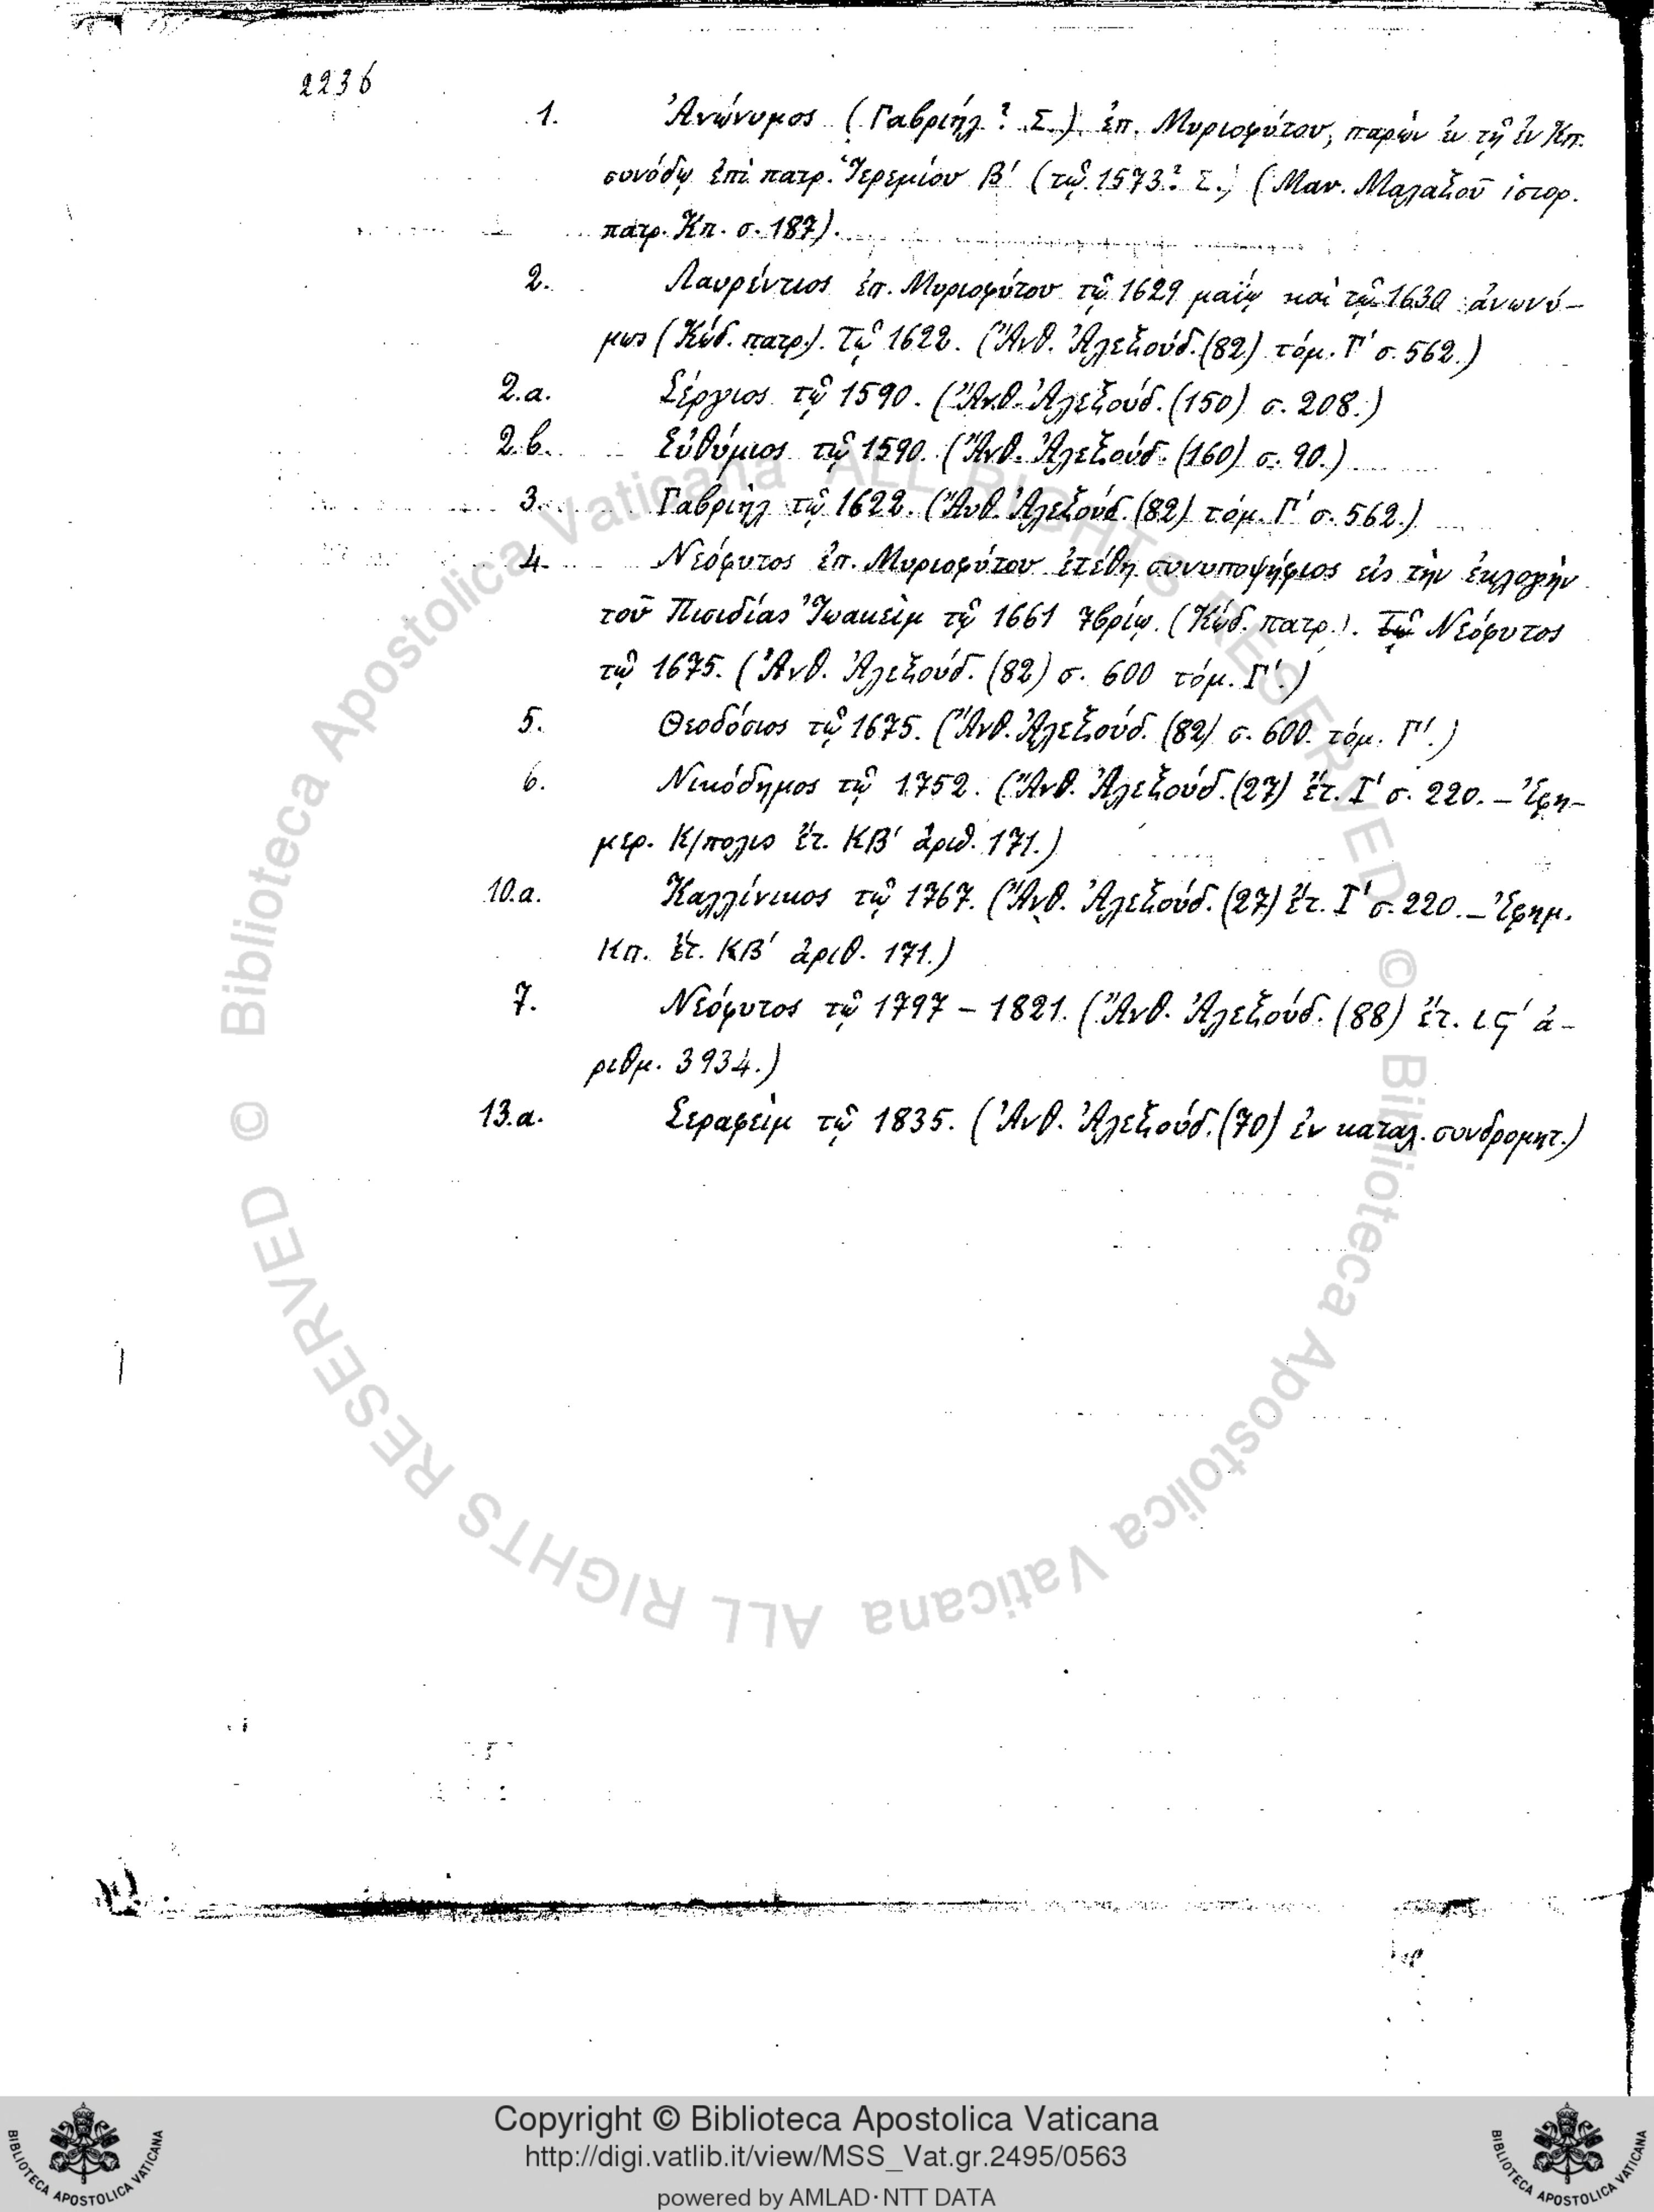 2236
1. Ἀνώνυμος (Γαβριήλ? Σ.) ἐπ. Μυριοφύτου, παρὼν ἐν τῇ ἐν Κπ.
συνόδῳ ἐπὶ πατρ. Ἱερεμίου Β΄ (τῷ 1573? Σ.) (Μαν. Μαλαξοῦ ἱστορ.
πατρ. Κπ. σ. 187).
2. Λαυρέντιος ἐπ. Μυριοφύτου τῷ 1629 μαΐῳ καὶ τῷ 1630 ἀνωνύ-
μως (Κώδ. πατρ.). Τῷ 1622. (Ἄνθ. Ἀλεξούδ. (82) τόμ. Γ΄ σ. 562.)
2.a. Σέργιος τῷ 1590. (Ἄνθ. Ἀλεξούδ. (150) σ. 208.)
2.b. Εὐθύμιος τῷ 1590. (Ἄνθ. Ἀλεξούδ. (160) σ. 90.)
3. Γαβριὴλ τῷ 1622. (Ἄνθ. Ἀλεξούδ. (82) τόμ. Γ΄ σ. 562.)
4. Νεόφυτος ἐπ. Μυριοφύτου ἐτέθη συνυποψήφιος εἰς τὴν ἐκλογὴν
τοῦ Πισιδίας Ἰωακεὶμ τῷ 1661 7βρίῳ. (Κώδ. πατρ.). Τῷ Νεόφυτος
τῷ 1675. (Ἄνθ. Ἀλεξούδ. (82) σ. 600 τόμ. Γ΄.)
5. Θεοδόσιος τῷ 1675. (Ἄνθ. Ἀλεξούδ. (82) σ. 600. τόμ. Γ΄.)
6. Νικόδημος τῷ 1752. (Ἄνθ. Ἀλεξούδ. (27) ἔτ. Ι΄ σ. 220. – Ἐφη-
μερ. Κ/πολις ἔτ. ΚΒ΄ ἀριθ. 171.)
10.a. Καλλίνικος τῷ 1767. (Ἄνθ. Ἀλεξούδ. (27) ἔτ. Ι΄ σ. 220. – Ἐφημ.
Κπ. ἔτ. ΚΒ΄ ἀριθ. 171.)
7. Νεόφυτος τῷ 1797 – 1821. (Ἄνθ. Ἀλεξούδ. (88) ἔτ. ιϛ΄ ἀ-
ριθμ. 3934.)
13.a. Σεραφεὶμ τῷ 1835. (Ἄνθ. Ἀλεξούδ. (70) ἐν καταλ. συνδρομητ.)
© Biblioteca Apostolica Vaticana ALL RIGHTS RESERVED
© Biblioteca Apostolica Vaticana ALL RIGHTS RESERVED
Copyright © Biblioteca Apostolica Vaticana
http://digi.vatlib.it/view/MSS_Vat.gr.2495/0563
powered by AMLAD·NTT DATA
BIBLIOTECA APOSTOLICA VATICANA
BIBLIOTECA APOSTOLICA VATICANA